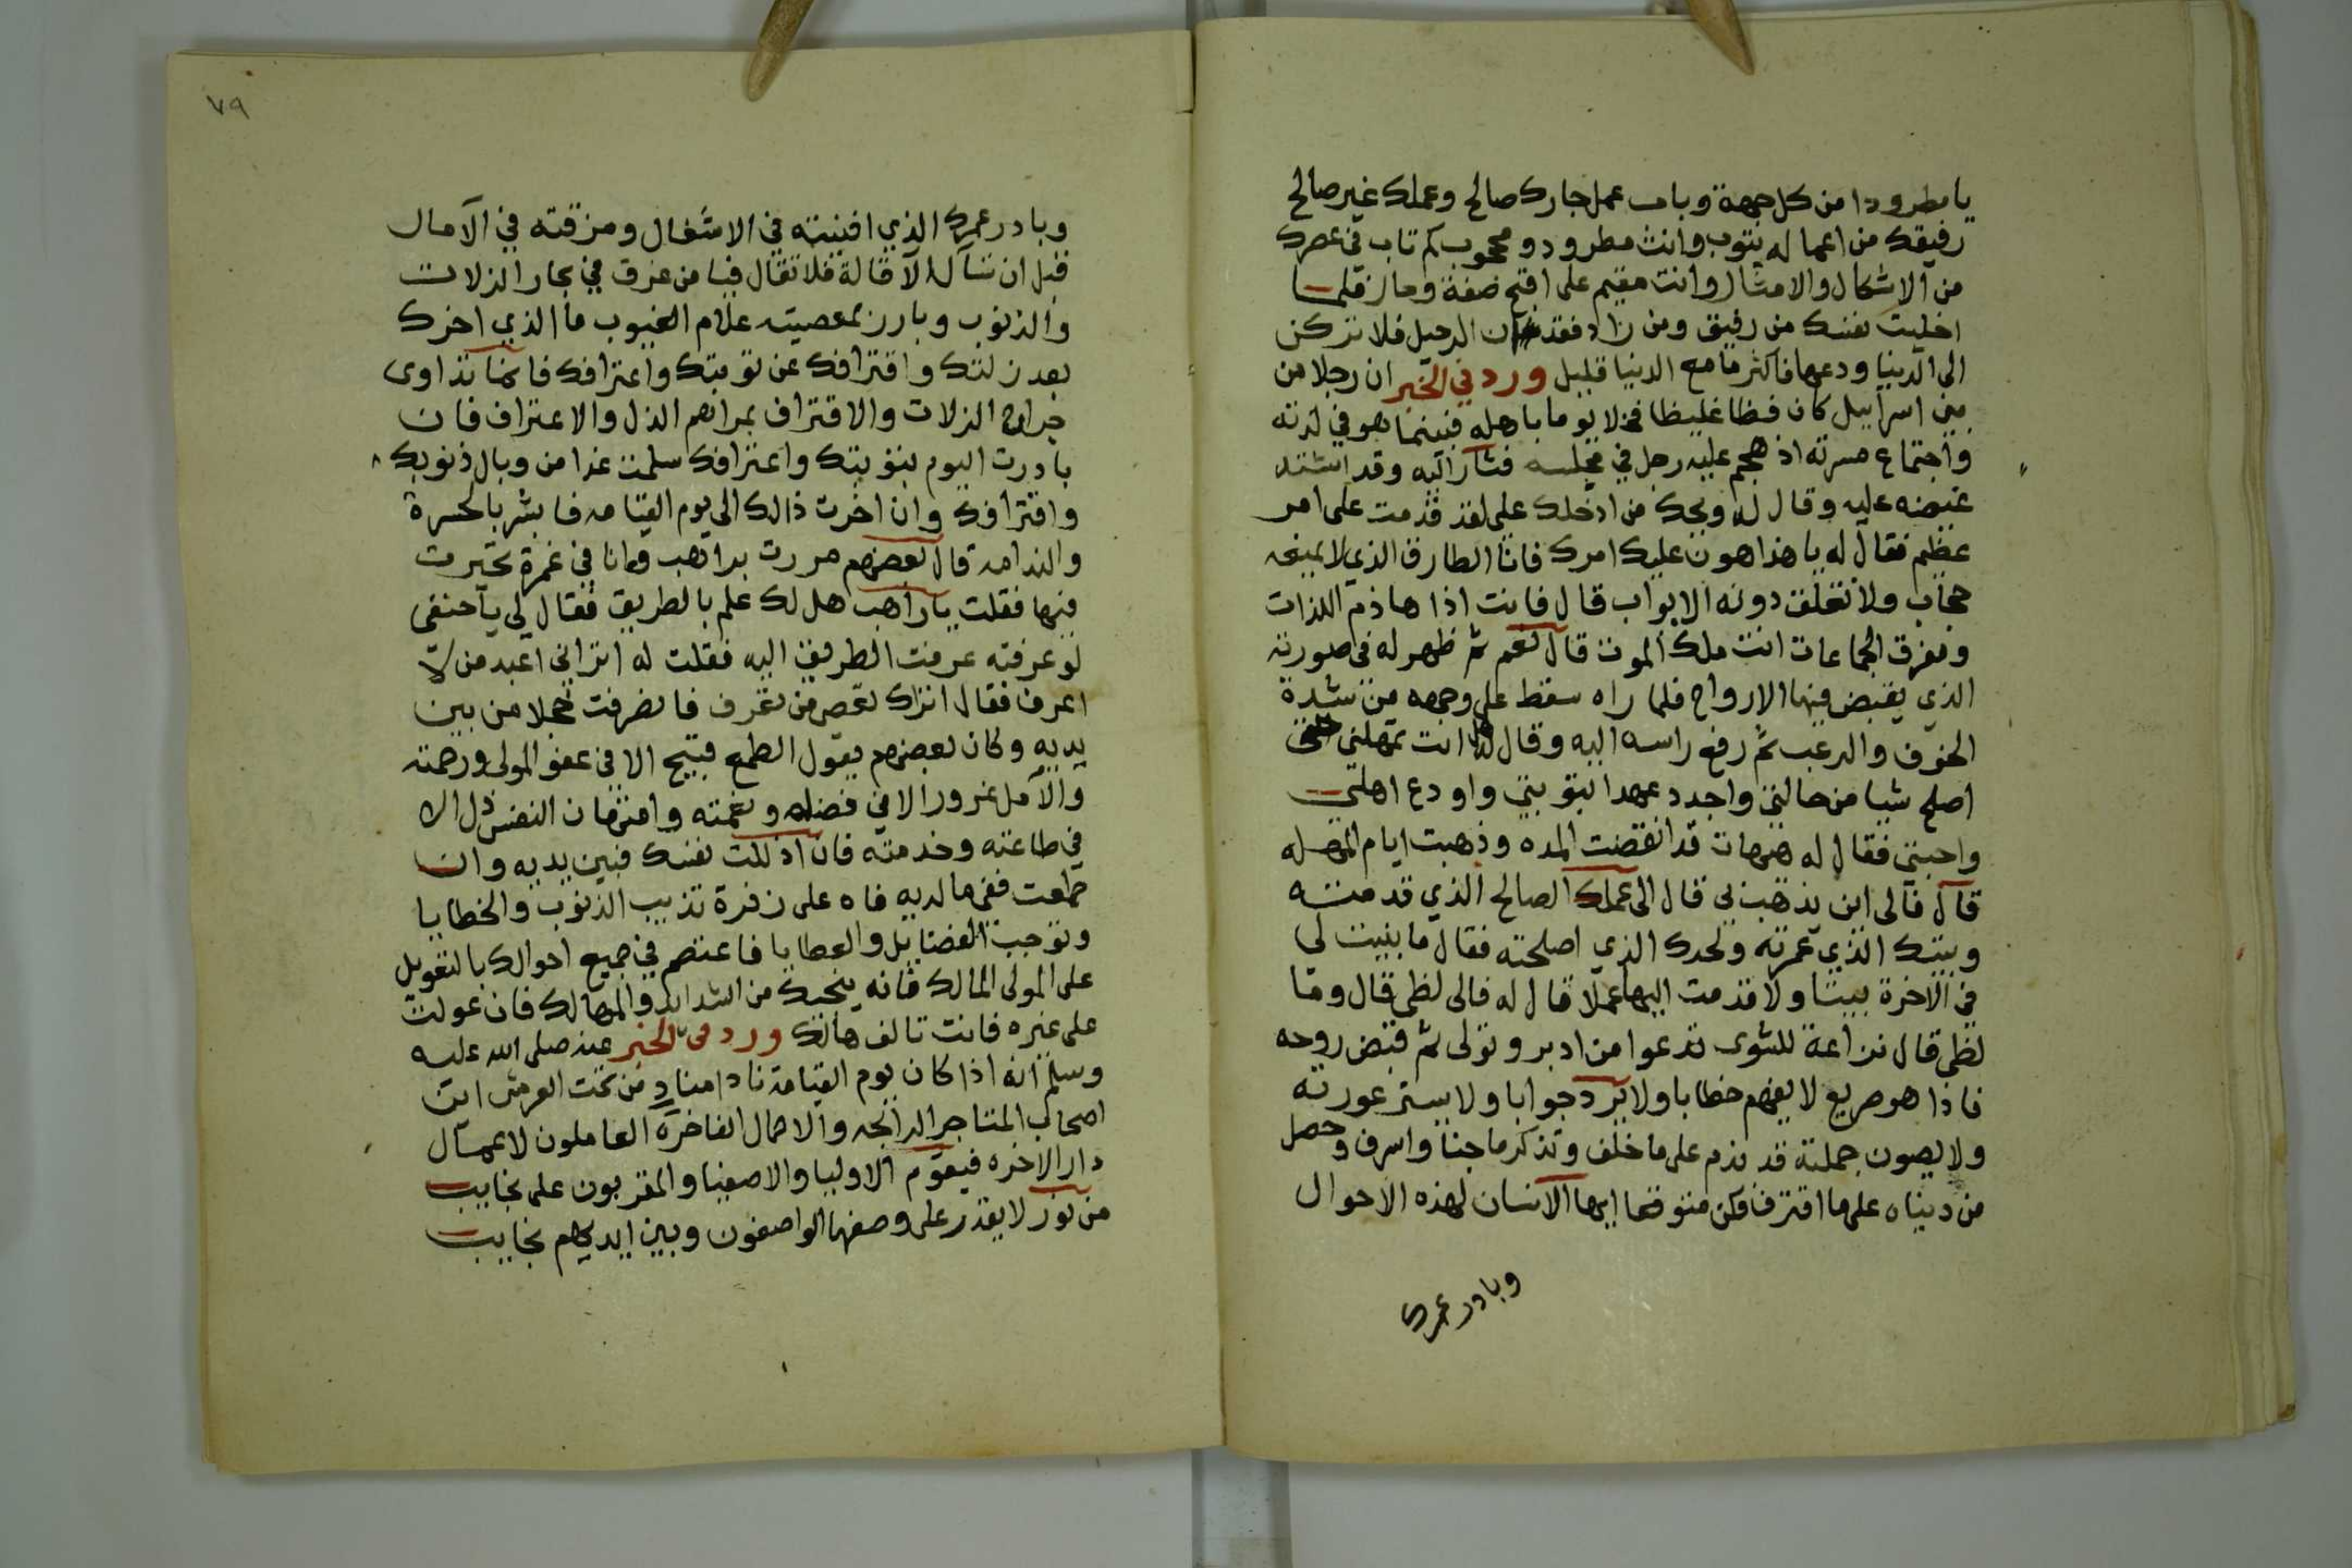 يا مطرودا من كل جهة وباب عمل جارك صالح وعملك غير صالح
رفيقك من اعماله يتوب وانت مطرود ومحجوب كم تاب في عصرك
من الاشكال والامثال وانت مقيم على اقبح صفة وحاز قلما
اخليت نفسك من رفيق ومن زاد فقد حان الرحيل فلا تركن
الى الدنيا ودعها فاكثر ما مع الدنيا قليل ورد في الخبر ان رجلا من
بني اسراييل كان فظا غليظا فخلا يوما باهله فبينما هو في لذته
واجتماع مسرته اذ هجم عليه رجل في مجلسه فثار اليه وقد اشتد
غيضه عليه وقال له ويحك من ادخلك على لقد قدمت على امر
عظيم فقال له يا هذا هون عليك امرك فانا الطارق الذي لا يمنعه
حجاب ولا تغلق دونه الابواب قال فانت اذا هاذم اللذات
ومفرق الجماعات انت ملك الموت قال نعم ثم ظهر له في صورته
الذي يقبض فيها الارواح فلما راه سقط على وجهه من شدة
الخوف والرعب ثم رفع راسه اليه وقال له انت تمهلني حتى
اصلح شيا من حالتي واجدد عهدا بتوبتي واودع اهلي
واحبتي فقال له هيهات قد انقضت المده وذهبت ايام المهله
قال فالى اين يذهب بي قال الى عملك الصالح الذي قدمته
وبيتك الذي عمرته ولحدك الذي اصلحته فقال ما بنيت لي
في الاخرة بيتا ولا قدمت اليها عملا قال له فالى لظى قال وما
لظى قال نزاعة للشوى تدعوا من ادبر وتولى ثم قبض روحه
فاذا هو صريع لا يفهم خطابا ولا يرد جوابا ولا يستر عورته
ولا يصون جملته قد ندم على ما خلف وتذكر ما جنا واسرف وحصل
من دنياه على ما اقترف فكن متوقعا ايها الانسان لهذه الاحوال
وبادر عمرك
٧٩
وبادر عمرك الذي افنيته في الاشغال ومزقته في الآمال
قبل ان تسال الاقالة فلا تقال فيا من غرق في بحار الزلات
والذنوب وبارز بمعصيته علام الغيوب ما الذي اخرك
بعد زلتك واقترافك عن توبتك واعترافك فانما تداوى
جراح الزلات والاقتراف بمراهم الذل والاعتراف فان
بادرت اليوم بتوبتك واعترافك سلمت غدا من وبال ذنوبك
واقترافك وان اخرت ذالك الى يوم القيامه فابشر بالحسرة
والندامه قال بعضهم مررت براهب وانا في غمرة تحيرت
فيها فقلت يا راهب هل لك علم بالطريق فقال لي يا حنفى
لو عرفته عرفت الطريق اليه فقلت له اتراني اعبد من لا
اعرف فقال اتراك تعص من تعرف فانصرفت خجلا من بين
يديه وكان بعضهم يقول الطمع قبيح الا في عفو المولى ورحمته
والامل غرور الا في فضله ونعمته وامتهان النفس ذل الا
في طاعته وخدمته فان اذللت نفسك فبين يديه وان
طمعت ففى ما لديه فاه على زفرة تذيب الذنوب والخطايا
وتوجب الفضايل والعطايا فاعتصم في جميع احوالك بالتعويل
على المولى المالك فانه ينجيك من الشدايد والمهالك فان عولت
على غيره فانت تالف هالك ورد في الخبر عنه صلى الله عليه
وسلم انه اذا كان يوم القيامة نادا مناد من تحت العرش اين
اصحاب المتاجر الرابحه والاحمال الفاخرة العاملون لاعمال
دار الاخره فيقوم الاوليا والاصفيا والمقربون على نجايب
من نور لا يقدر على وصفها الواصفون وبين ايديهم نجايب